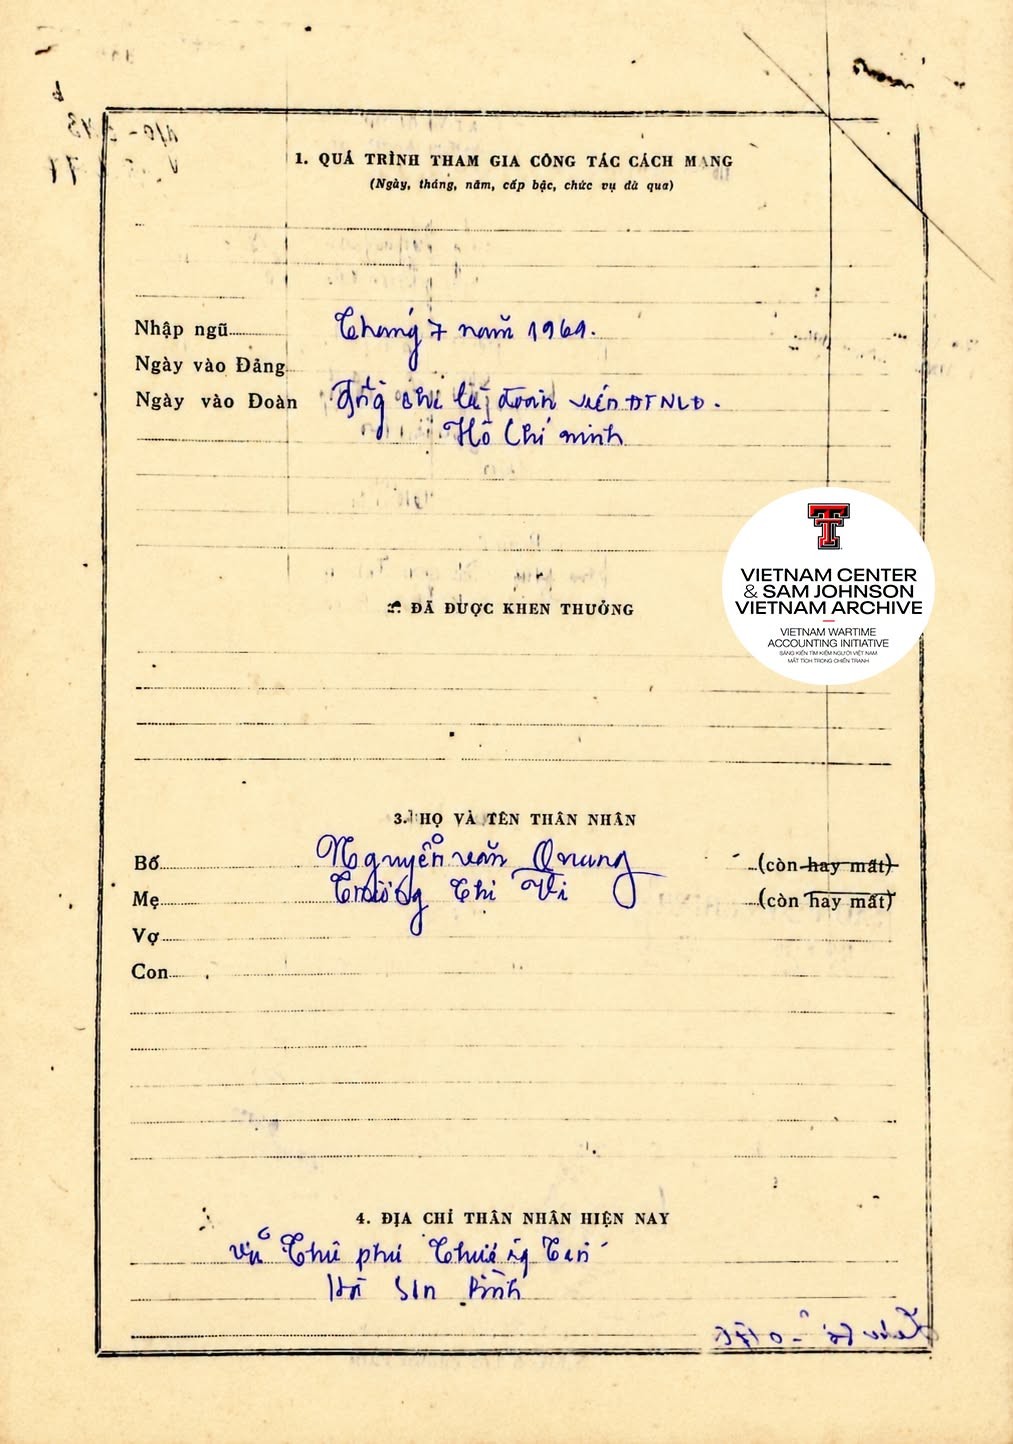 1. QUÁ TRÌNH THAM GIA CÔNG TÁC CÁCH MẠNG
(Ngày, tháng, năm, cấp bậc, chức vụ đã qua)
Nhập ngũ Tháng 7 năm 1969.
Ngày vào Đảng
Ngày vào Đoàn Đồng chí là đoàn viên ĐTNLĐ.
Hồ Chí minh
2. ĐÃ ĐƯỢC KHEN THƯỞNG
VIETNAM CENTER
& SAM JOHNSON
VIETNAM ARCHIVE
VIETNAM WARTIME
ACCOUNTING INITIATIVE
SÁNG KIẾN TÌM KIẾM NGƯỜI VIỆT NAM
MẤT TÍCH TRONG CHIẾN TRANH
3. HỌ VÀ TÊN THÂN NHÂN
Bố Nguyễn văn Quang (còn hay mất)
Mẹ Thị Vi (còn hay mất)
Vợ
Con
4. ĐỊA CHỈ THÂN NHÂN HIỆN NAY
phú Thường Tín
Hà Sơn Bình